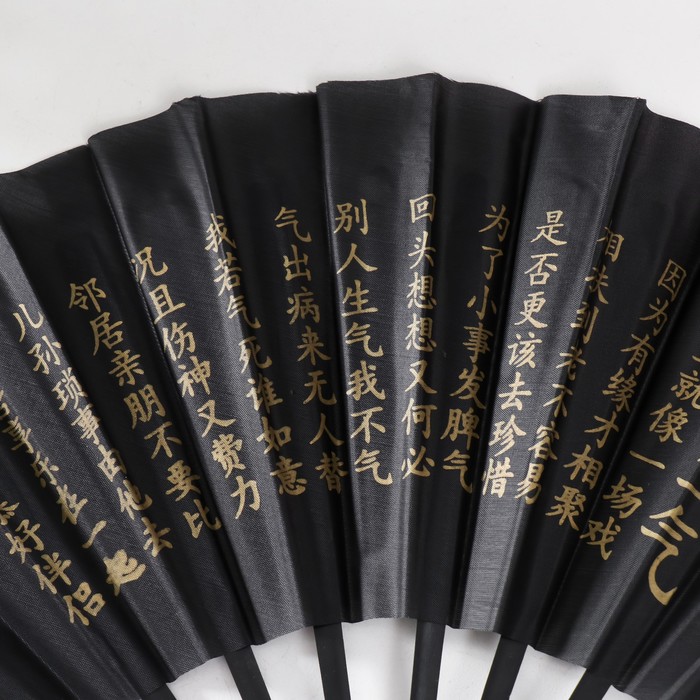 气
就像一场戏
因为有缘才相聚
相扶到头不容易
是否更该去珍惜
为了小事发脾气
回头想想又何必
别人生气我不气
气出病来无人替
我若气死谁如意
况且伤神又费力
邻居亲朋不要比
儿孙琐事由他去
享乐在一起
好伴侣